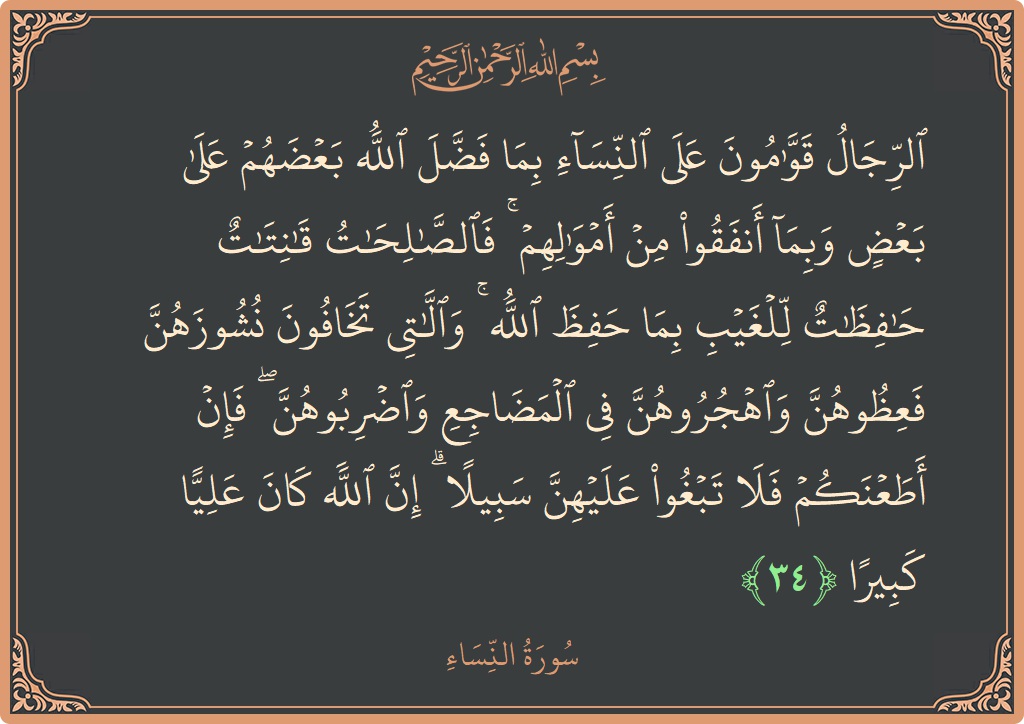 بِسْمِ اللَّهِ الرَّحْمَٰنِ الرَّحِيمِ
ٱلرِّجَالُ قَوَّٰمُونَ عَلَى ٱلنِّسَآءِ بِمَا فَضَّلَ ٱللَّهُ بَعْضَهُمْ عَلَىٰ
بَعْضٍ وَبِمَآ أَنفَقُوا۟ مِنْ أَمْوَٰلِهِمْ ۚ فَٱلصَّٰلِحَٰتُ قَٰنِتَٰتٌ
حَٰفِظَٰتٌ لِّلْغَيْبِ بِمَا حَفِظَ ٱللَّهُ ۚ وَٱلَّٰتِى تَخَافُونَ نُشُوزَهُنَّ
فَعِظُوهُنَّ وَٱهْجُرُوهُنَّ فِى ٱلْمَضَاجِعِ وَٱضْرِبُوهُنَّ ۖ فَإِنْ
أَطَعْنَكُمْ فَلَا تَبْغُوا۟ عَلَيْهِنَّ سَبِيلًا ۗ إِنَّ ٱللَّهَ كَانَ عَلِيًّا
كَبِيرًا ﴿٣٤﴾
سُورَةُ النِّسَاءِ